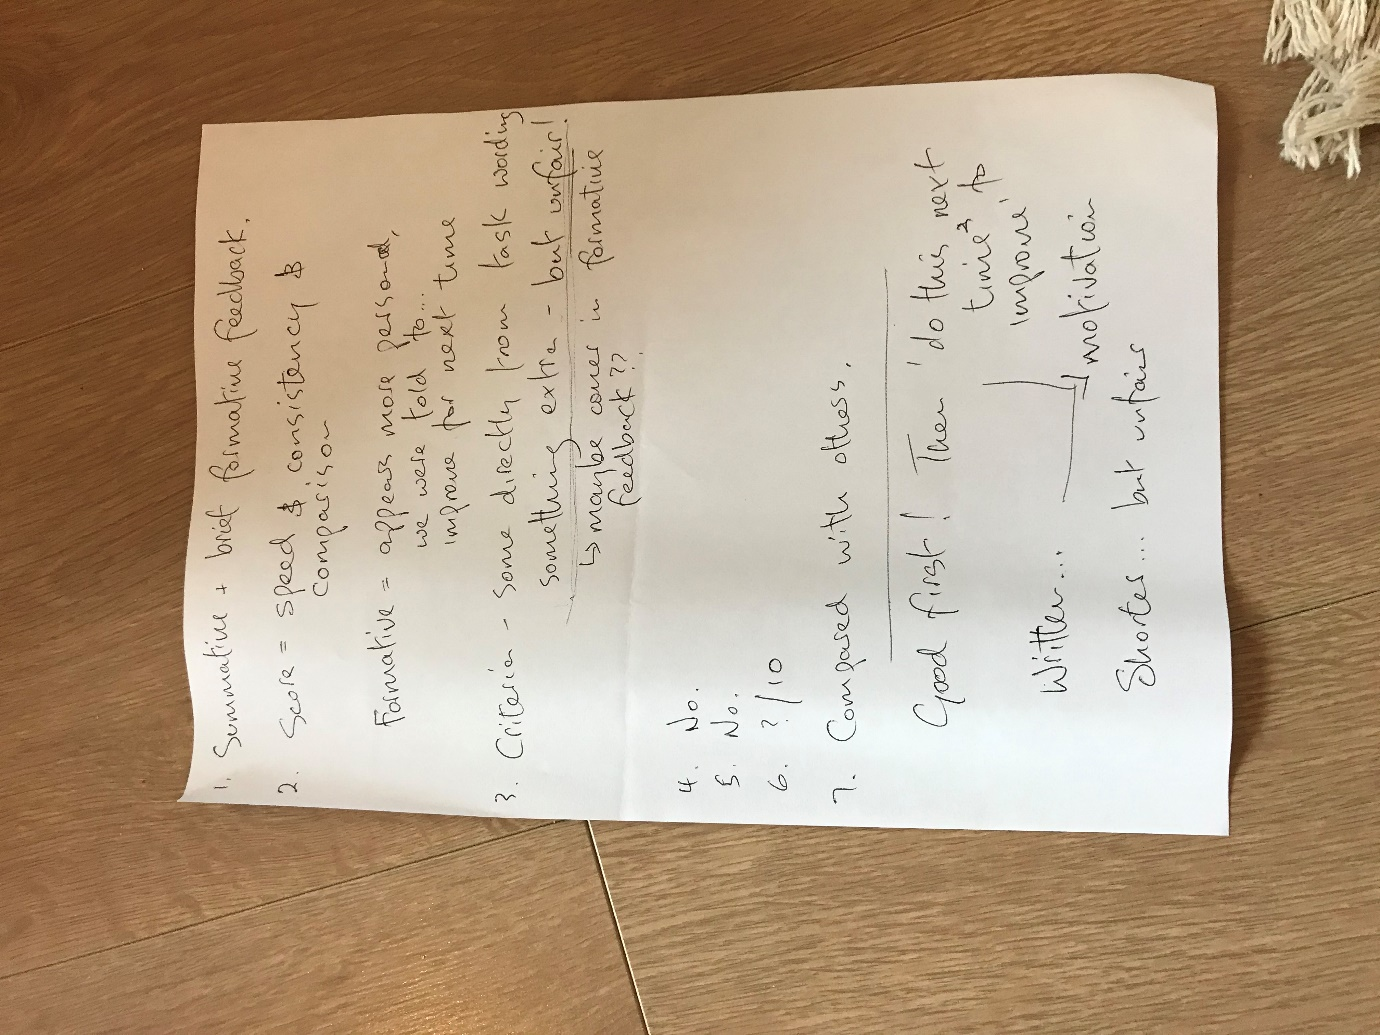 1. Summative + brief formative feedback.
2. Score = speed & consistency &
comparison
Formative = appears more personal,
we were told to...
improve for next time
3. Criteria - some directly from task wording
something extra - but unfair!
↳ maybe comes in formative
feedback??
4. No.
5. No.
6. ?/10
7. Compared with others.
Good first! Then 'do this next
time' to
improve'
Written...
motivation
Shorter... but unfair